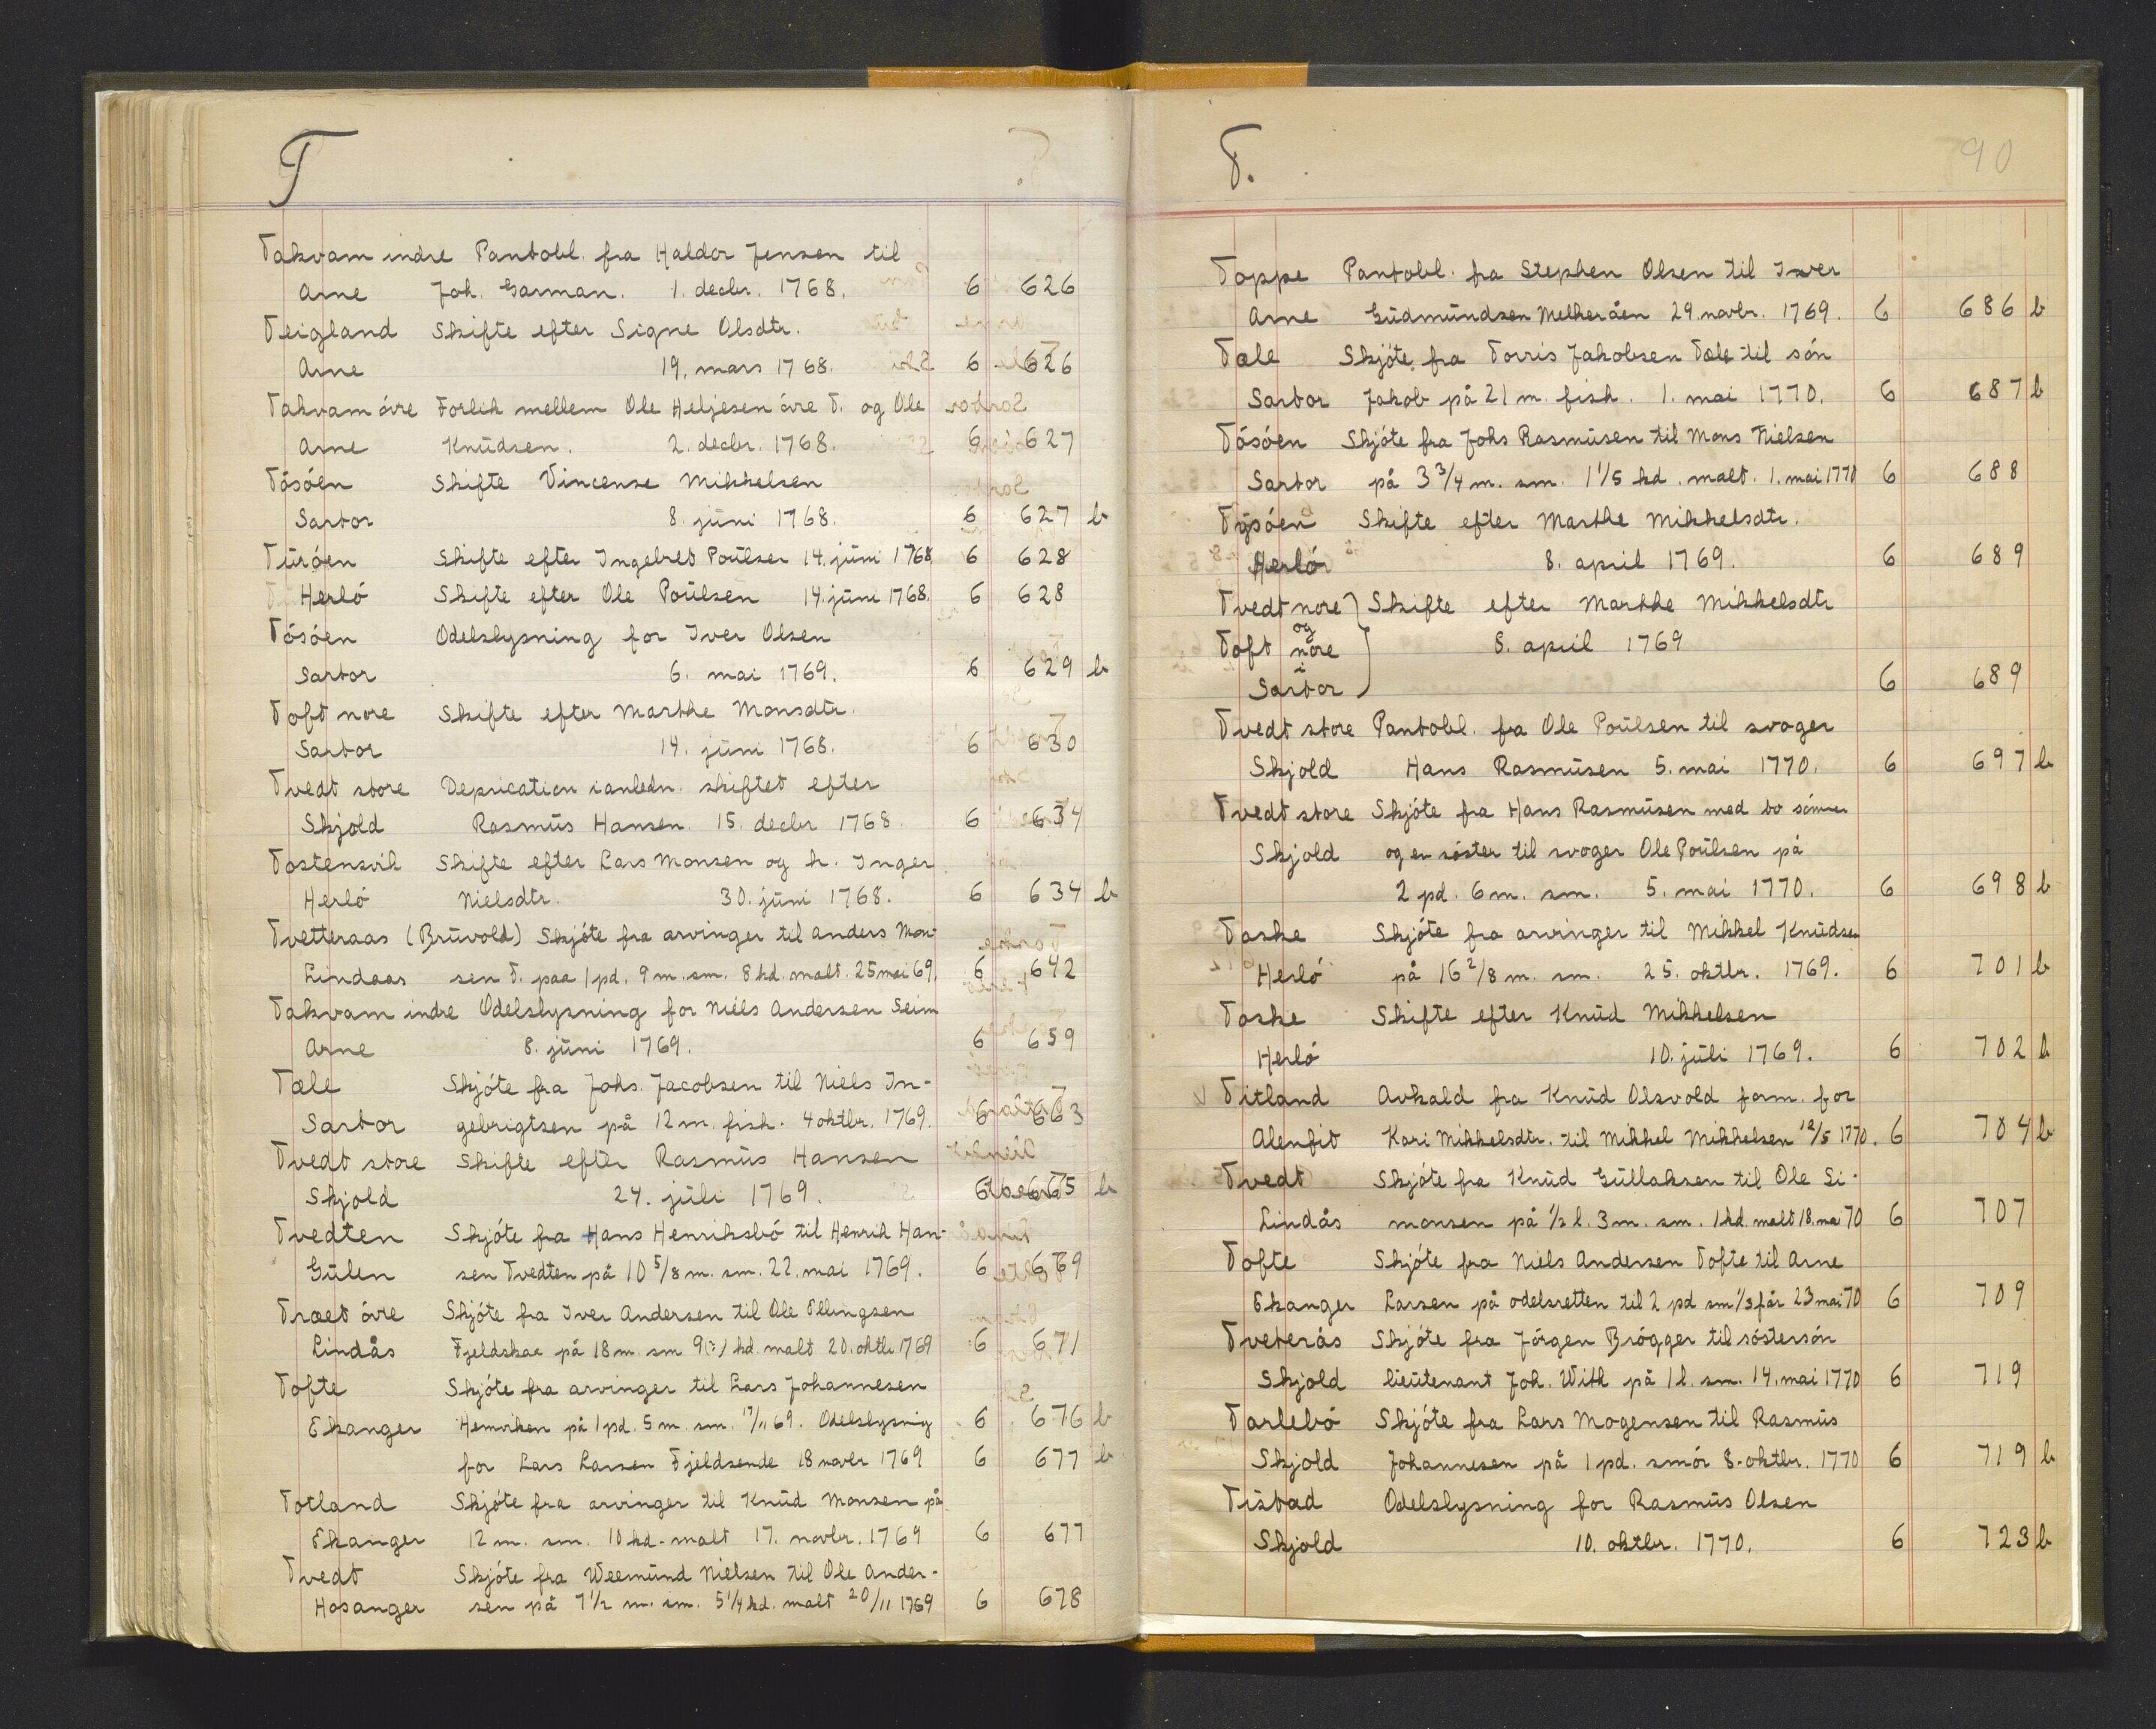 T
Takvam indre Pantobl. fra Haldor Jensen til
Arne Joh. Garman. 1. decbr. 1768. 6 626
Teigland Skifte efter Signe Olsdtr.
Arne 19. mars 1768. 6 626
Takvam övre Forlik mellem Ole Heljesen övre T. og Ole
Arne Knudsen. 2. decbr. 1768. 6 627
Tösöen Skifte Vincense Mikkelsen
Sartor 8. juni 1768. 6 627 b
Turöen Skifte efter Ingebret Poulsen 14. juni 1768 6 628
Herlö Skifte efter Ole Poulsen 14. juni 1768. 6 628
Tösöen Odelslysning for Iver Olsen
Sartor 6. mai 1769. 6 629 b
Toft nore Skifte efter Marthe Monsdtr.
Sartor 14. juni 1768. 6 630
Tvedt store Deprication i anledn. skiftet efter
Skjold Rasmus Hansen. 15. decbr 1768. 6 634
Tostensvik Skifte efter Lars Monsen og h. Inger
Herlö Nielsdtr. 30. juni 1768. 6 634 b
Tvetteraas (Bruvold) Skjöte fra arvinger til Anders Mon-
Lindaas sen T. paa 1 pd. 9 m. sm. 8 kd. malt. 25 mai 69. 6 642
Takvam indre Odelslysning for Niels Andersen Seim
Arne 8. juni 1769. 6 659
Tæle Skjöte fra Johs. Jacobsen til Niels In-
Sartor gebrigtsen på 12 m. fisk. 4 oktbr. 1769. 6 663
Tvedt store Skifte efter Rasmus Hansen
Skjold 24. juli 1769. 6 665 b
Tvedten Skjöte fra Hans Henriksbö til Henrik Han-
Gulen sen Tvedten på 10 5/8 m. sm. 22. mai 1769. 6 669
Træet övre Skjöte fra Iver Andersen til Ole Ellingsen
Lindås Fjeldskae på 18 m. sm 1 kd. malt 20. oktbr 1769 6 671
Tofte Skjöte fra arvinger til Lars Johannesen
Ekanger Hemviken på 1 pd. 5 m. sm. 17/11 69. Odelslysnig 6 676 b
for Lars Larsen Fjeldsende 18 novbr 1769 6 677 b
Totland Skjöte fra arvinger til Knud Monsen på
Ekanger 12 m. sm. 10 kd. malt 17. novbr. 1769 6 677
Tvedt Skjöte fra Weemund Nielsen til Ole Ander-
Hosanger sen på 7 1/2 m. sm. 5 1/4 kd. malt 20/11 1769 6 678
T. 90
Toppe Pantobl. fra Stephen Olsen til Iver
Arne Gudmundsen Melkeråen 29. novbr. 1769. 6 686 b
Tæle Skjöte fra Torris Jakobsen Tæle til sön
Sartor Jakob på 21 m. fisk. 1. mai 1770. 6 687 b
Tösöen Skjöte fra Johs Rasmusen til Mons Nielsen
Sartor på 3 3/4 m. sm. 1 1/5 kd. malt. 1. mai 1770 6 688
Tysöen Skifte efter Marthe Mikkelsdtr.
Herlö 8. april 1769. 6 689
Tvedt nore Skifte efter Marthe Mikkelsdtr
og
Toft nore 8. april 1769
i
Sartor 6 689
Tvedt store Pantobl. fra Ole Poulsen til svoger
Skjold Hans Rasmusen 5. mai 1770. 6 697 b
Tvedt store Skjöte fra Hans Rasmusen med to sönner
Skjold og en söster til svoger Ole Poulsen på
2 pd. 6 m. sm. 5. mai 1770. 6 698 b
Toske Skjöte fra arvinger til Mikkel Knudsen
Herlö på 16 2/8 m. sm. 25. oktbr. 1769. 6 701 b
Toske Skifte efter Knud Mikkelsen
Herlö 10. juli 1769. 6 702 b
Titland Avkald fra Knud Olsvold form. for
Alenfit Kari Mikkelsdtr. til Mikkel Mikkelsen 12/5 1770. 6 704 b
Tvedt Skjöte fra Knud Gullaksen til Ole Si-
Lindås monsen på 1/2 l. 3 m. sm. 1 kd malt 18. mai 70 6 707
Tofte Skjöte fra Niels Andersen Tofte til Arne
Ekanger Larsen på odelsretten til 2 pd sm 1/3 får 23 mai 70 6 709
Tveterås Skjöte fra Jörgen Brögger til söstersön
Skjold lieutenant Joh. With på 1 l. sm. 14. mai 1770 6 719
Tarlebö Skjöte fra Lars Mogensen til Rasmus
Skjold Johannesen på 1 pd. smör 8. oktbr. 1770 6 719 b
Tistad Odelslysning for Rasmus Olsen
Skjold 10. oktbr. 1770. 6 723 b